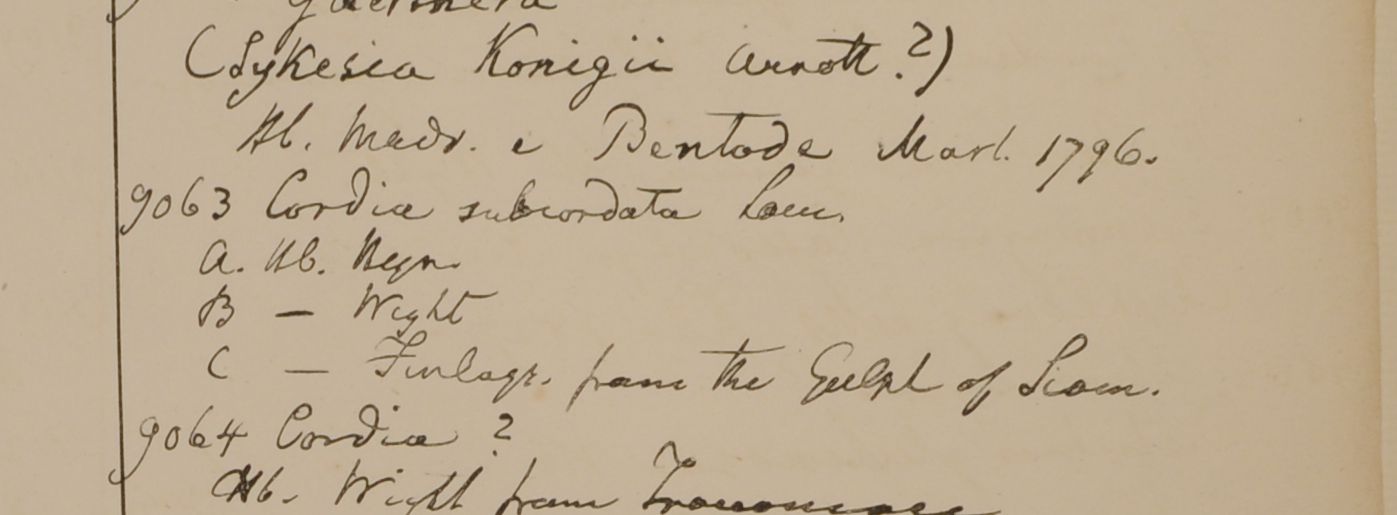 Gaertnera
(Sykesia Konigii Arnott?)
Hb. Madr. e Bentode Marl. 1796.
9063 Cordia subcordata Lam.
A. Hb. Heyn.
B — Wight
C — Finlays. from the Gulph of Siam.
9064 Cordia ?
Hb. Wight from